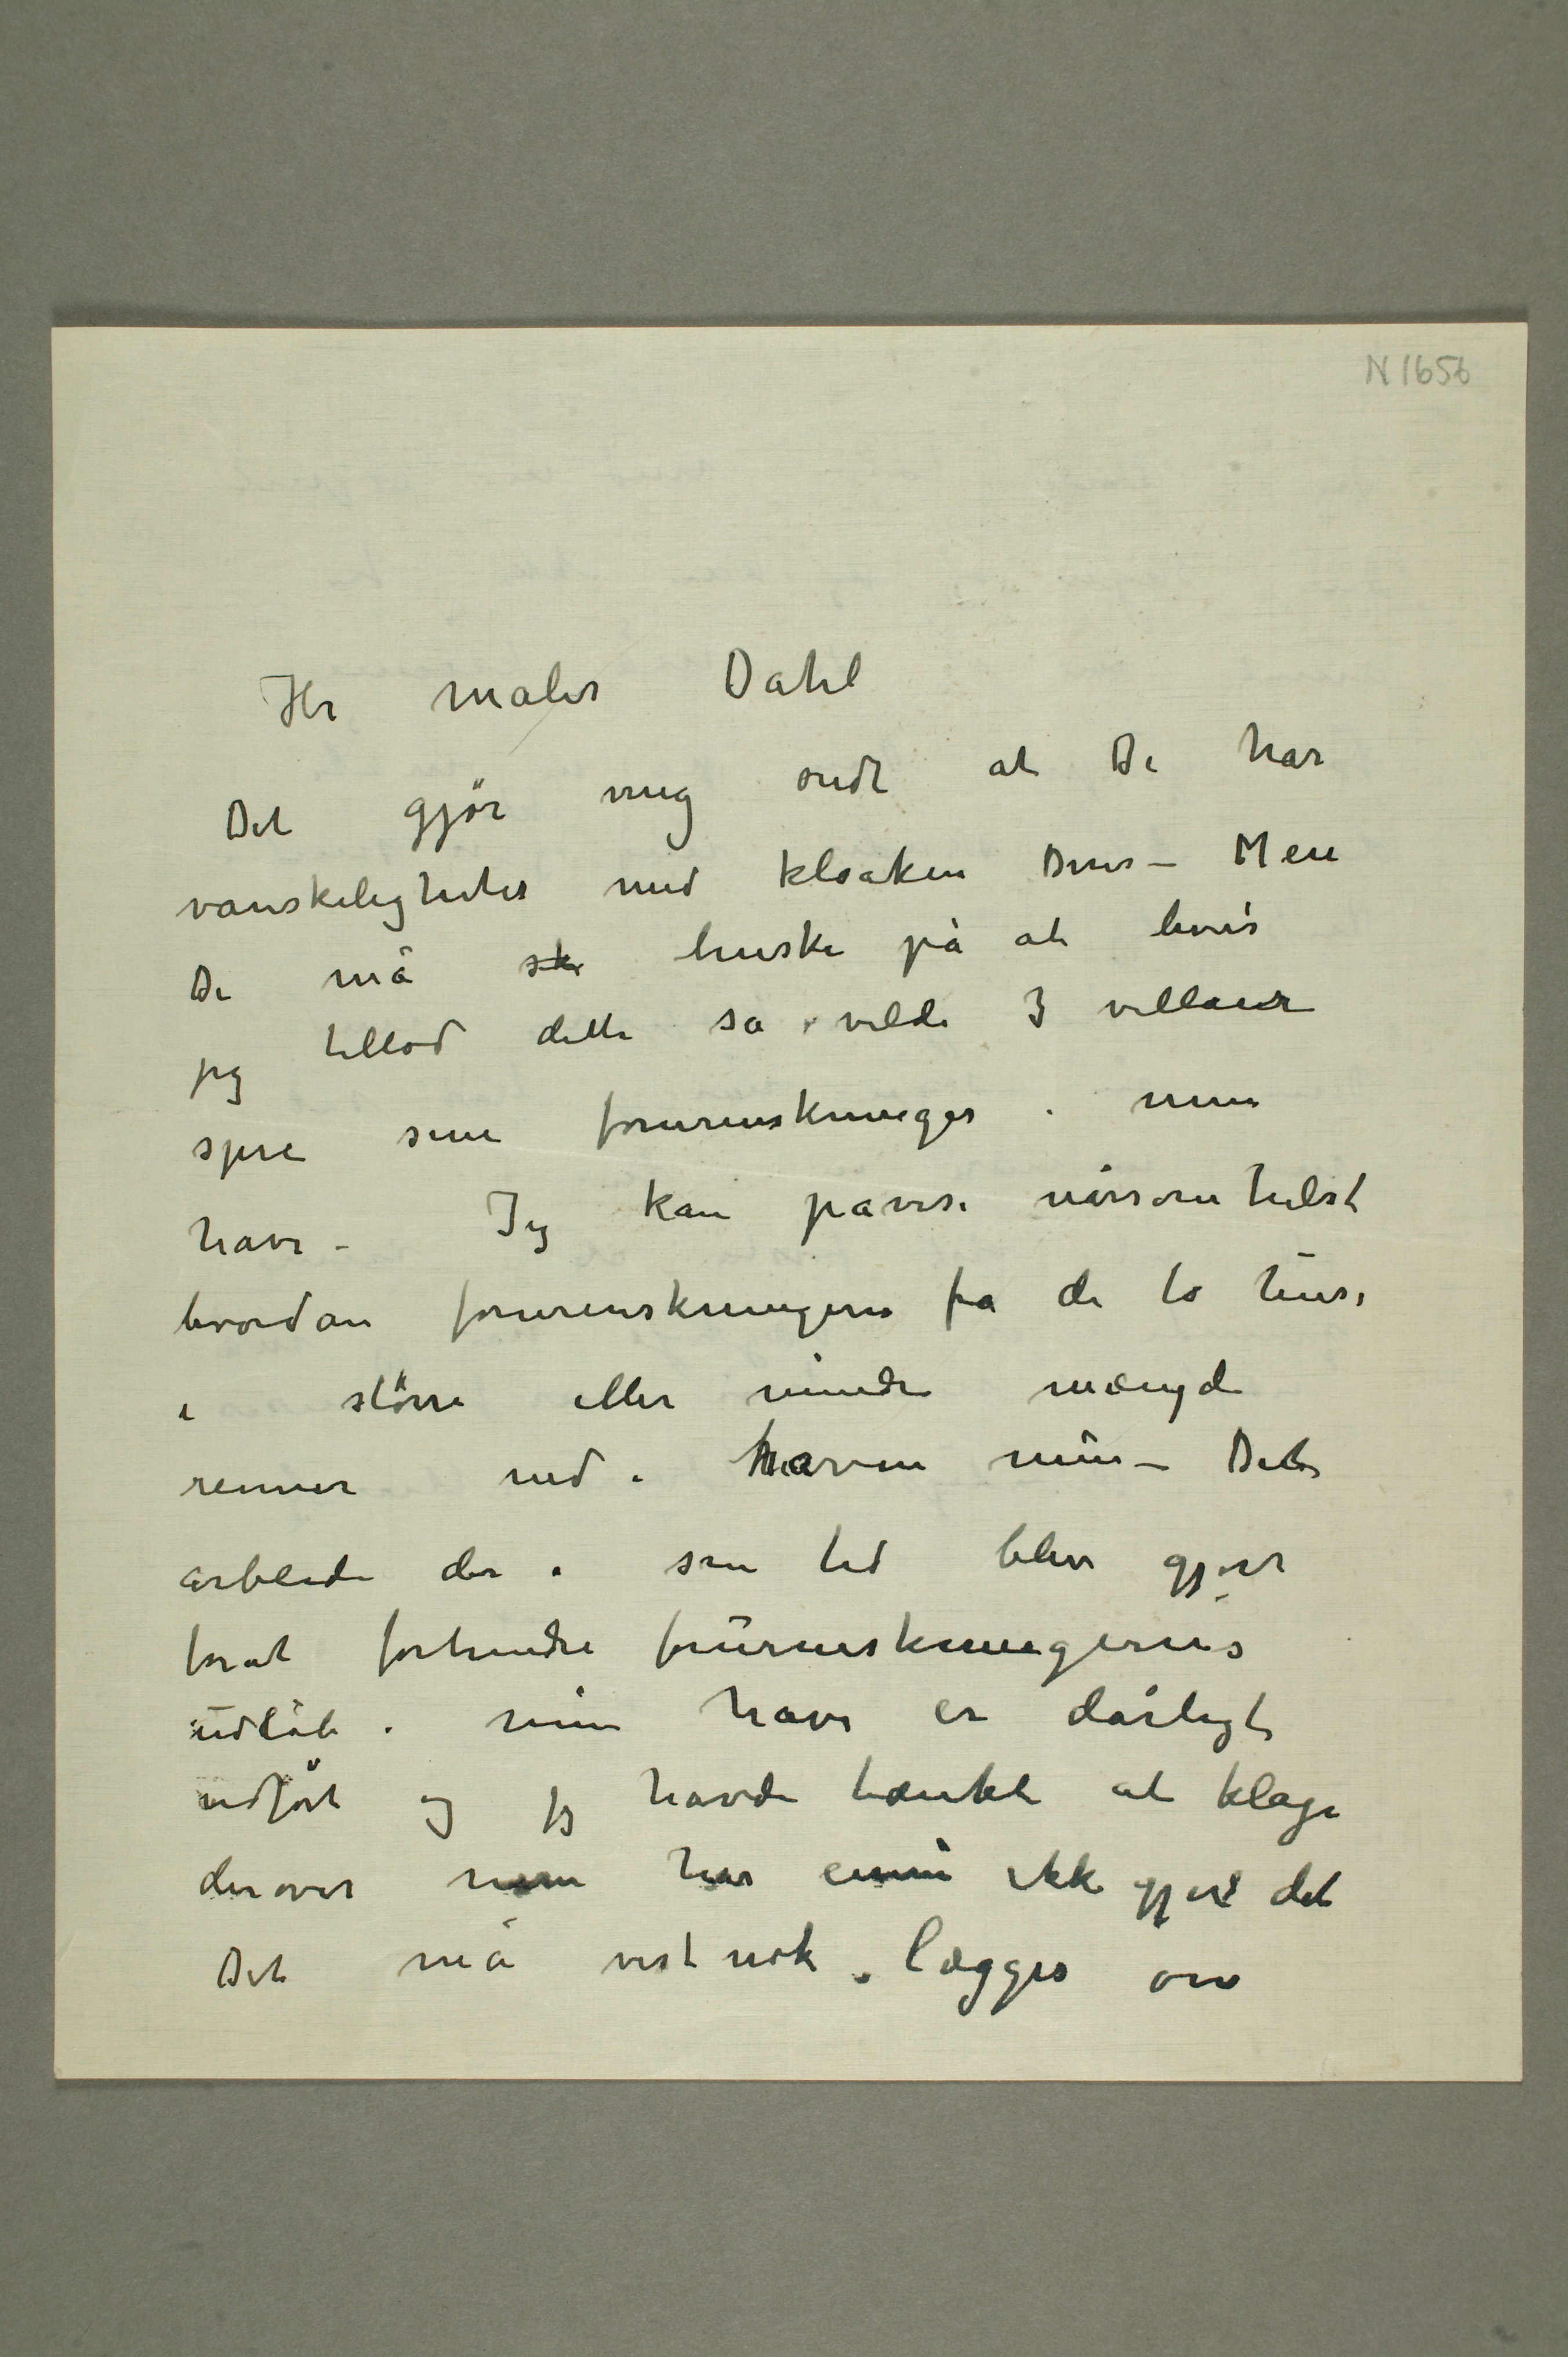 N 1656
Hr maler Dahl
Det gjør mig ondt at De har
vanskeligheter med kloaken Deres – Men
De må sk huske på at hvis
jeg tillod dette så vilde 3 villaer
spre sine forurenskninger i min
have – Jeg kan påvise nårsomhelst
hvordan forurenskningerne fra de to huse
i større eller mindre mængde
renner ned i haven min – Det
arbeide der i sin tid blev gjort
forat forhindre forurenskningernes
udløb i min have er dårligt
udført og jeg havde tænkt at klage
derover men har ennu ikke gjort det
Det må vistnok lægges om